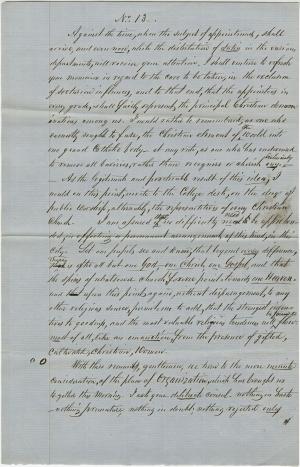 No. 13.
Against the time, when the subject of appointments, shall
arrive, and even now, while the distribution of duties in the various
departments, will receive your attention, I shall venture to refresh
your memories in regard to the care to be taken, in the exclusion
of sectarian influence, and to that end, that the appointees in
every grade, shall fairly represent, the principal Christian denom-
inations among us. I would rather be remembered, as one who
earnestly sought to fuse, the Christian element of the World into
one grand Catholic body - at any rate, as one who has endeavored
to remove all barriers, rather than recognize or cherish any
particularly
As the legitimate and practicable result of this idea, I
would on this point, invite to the College desk, on the days of
public Worship, alternately, the representatives of every Christian
Church. I am assured no difficulty need be apprehend-
ed, in effecting a permanent arrangement, of this kind, in the
City. Let our pupils see and know, that beyond every difference,
there is after all but one God - one Church, one Gospel, and that
the spires of whatever Church, forever point towards one Heaven
and upon this point again, without disparagement, to any
other religious sense, permit me to add, that the strongest incen-
tives to goodness, and the most valuable religious tendency will
be found
most of all, like an emanation, from the presence of gifted,
cultivated, Christian, Women.
With this remark, gentlemen, we turn to the more minute
consideration, of the plan of Organization, which has brought us
together this Morning. I ask your deliberate counsel. Nothing in haste -
nothing premature, nothing in doubt, nothing rejected only